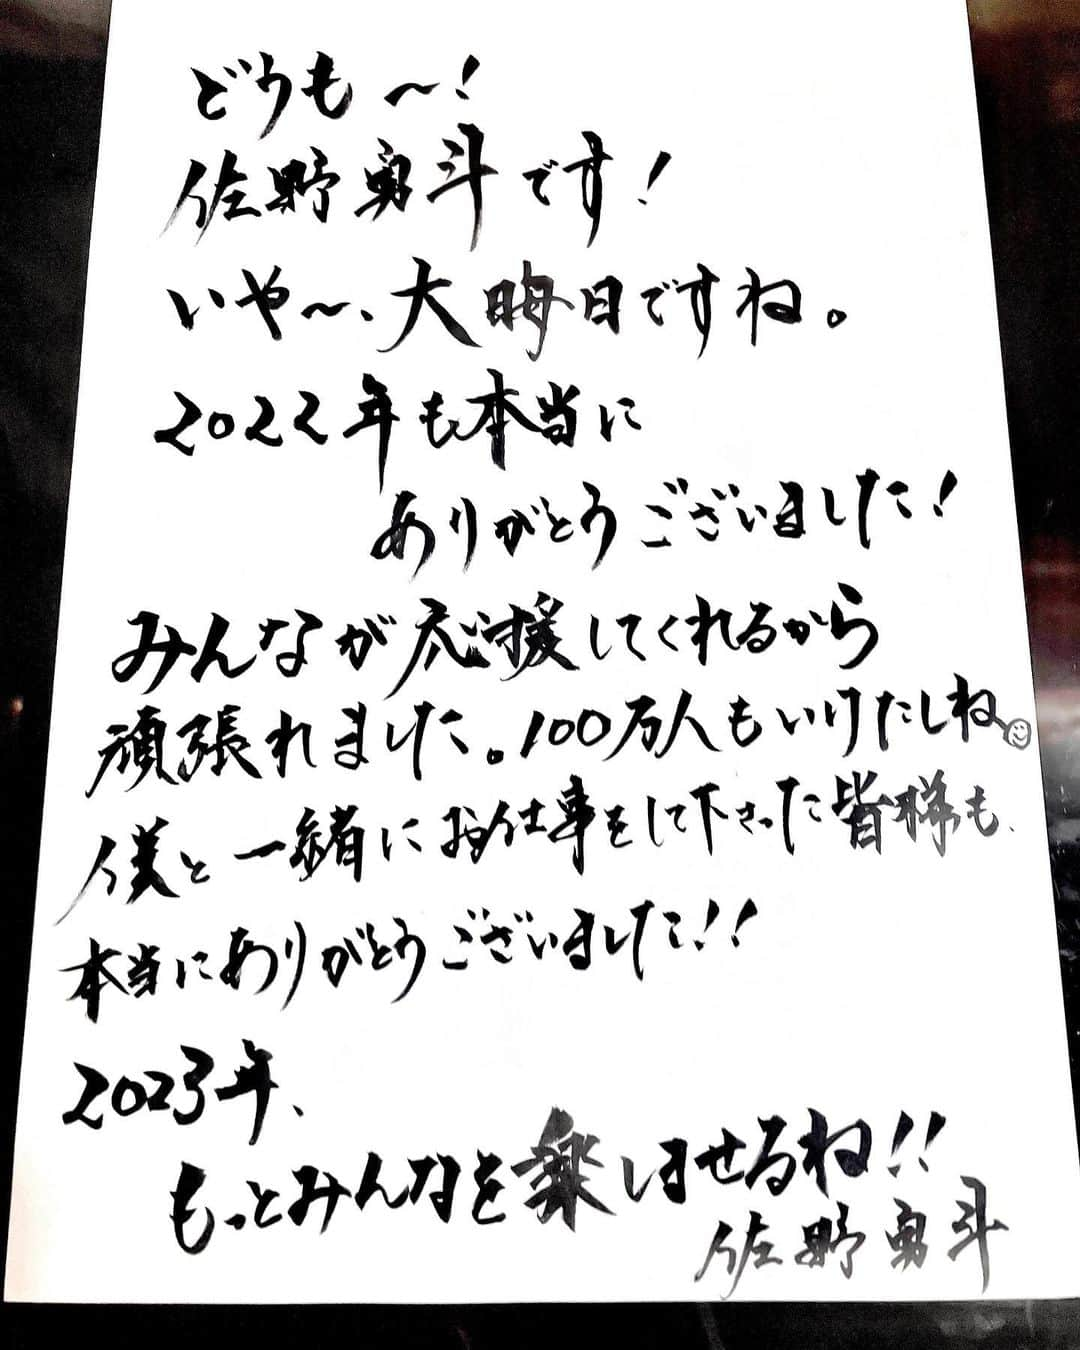 どうも〜!
佐野勇斗です!
いや〜、大晦日ですね。
2022年も本当に
ありがとうございました!
みんなが応援してくれるから
頑張れました。100万人もいけたしね
僕と一緒にお仕事をして下さった皆様も、
本当にありがとうございました!!
2023年、
もっとみんなを楽しませるね!!
佐野勇斗